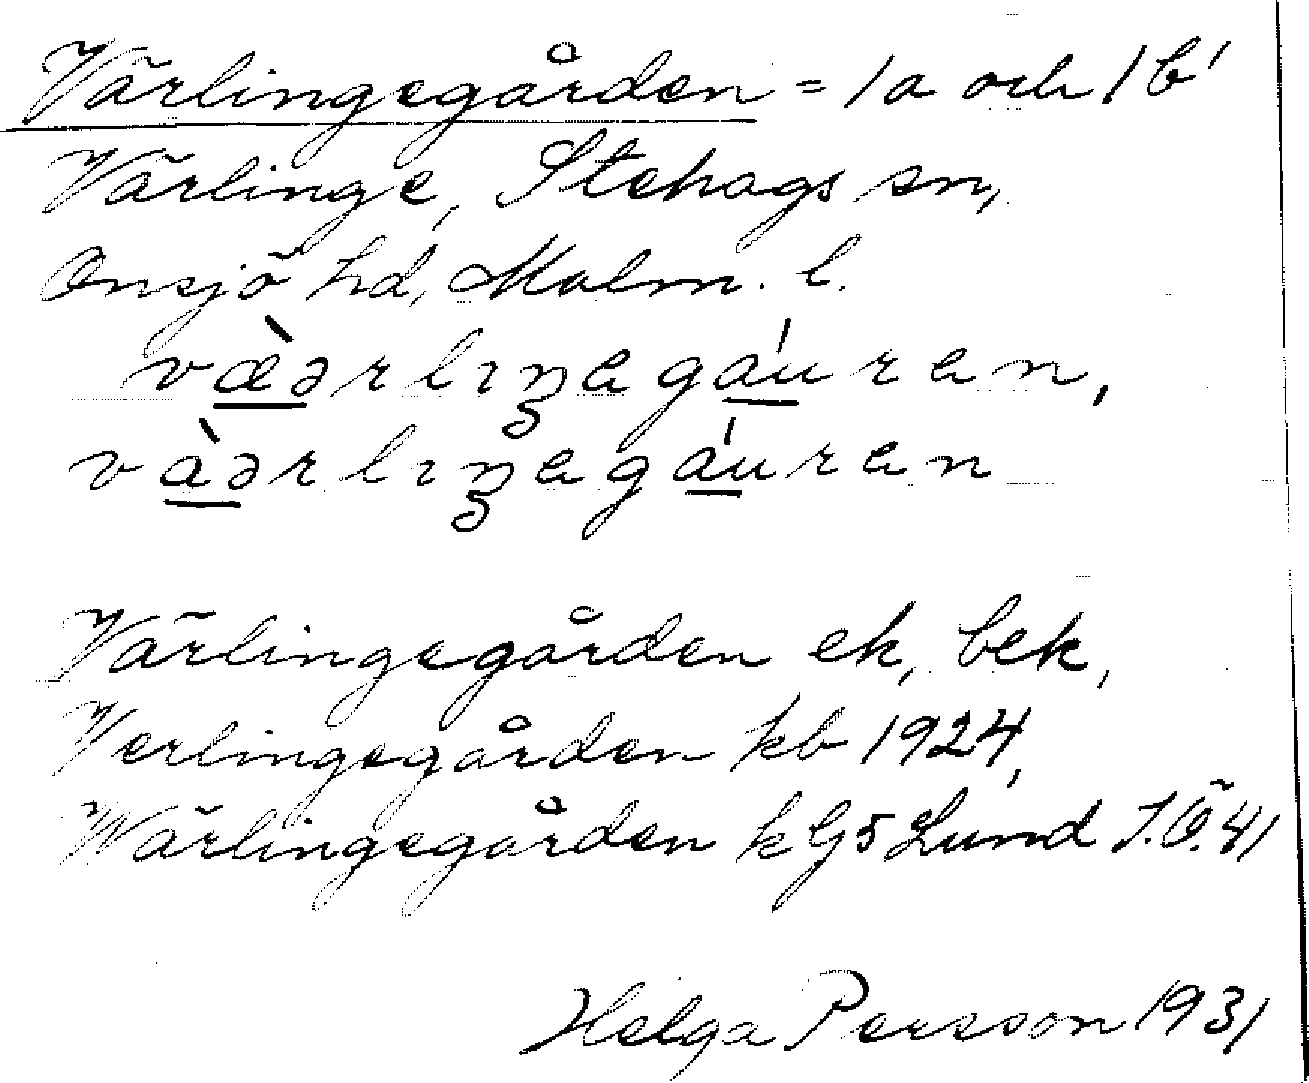 Värlingegården = 1a och 1b'
Värlinge, Stehags sn,
Onsjö hd, Malm. l.
væ̀ərlıŋegáuren,
vàərlıŋegáuren
Värlingegården ek, bek,
Verlingegården kb 1924,
Wärlingegården k G5 Lund I.Ö.41
Helga Persson 1931